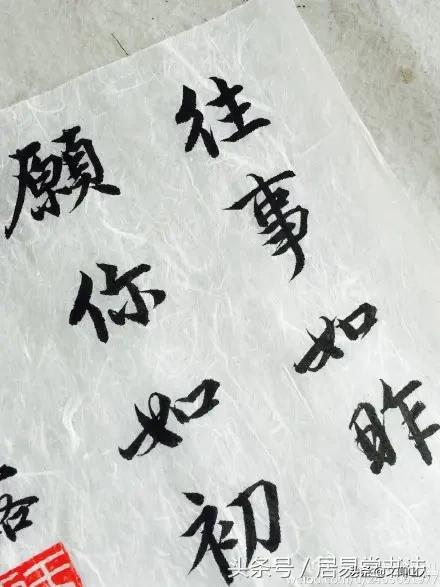 往事如昨
願你如初
头条号／居易堂书法